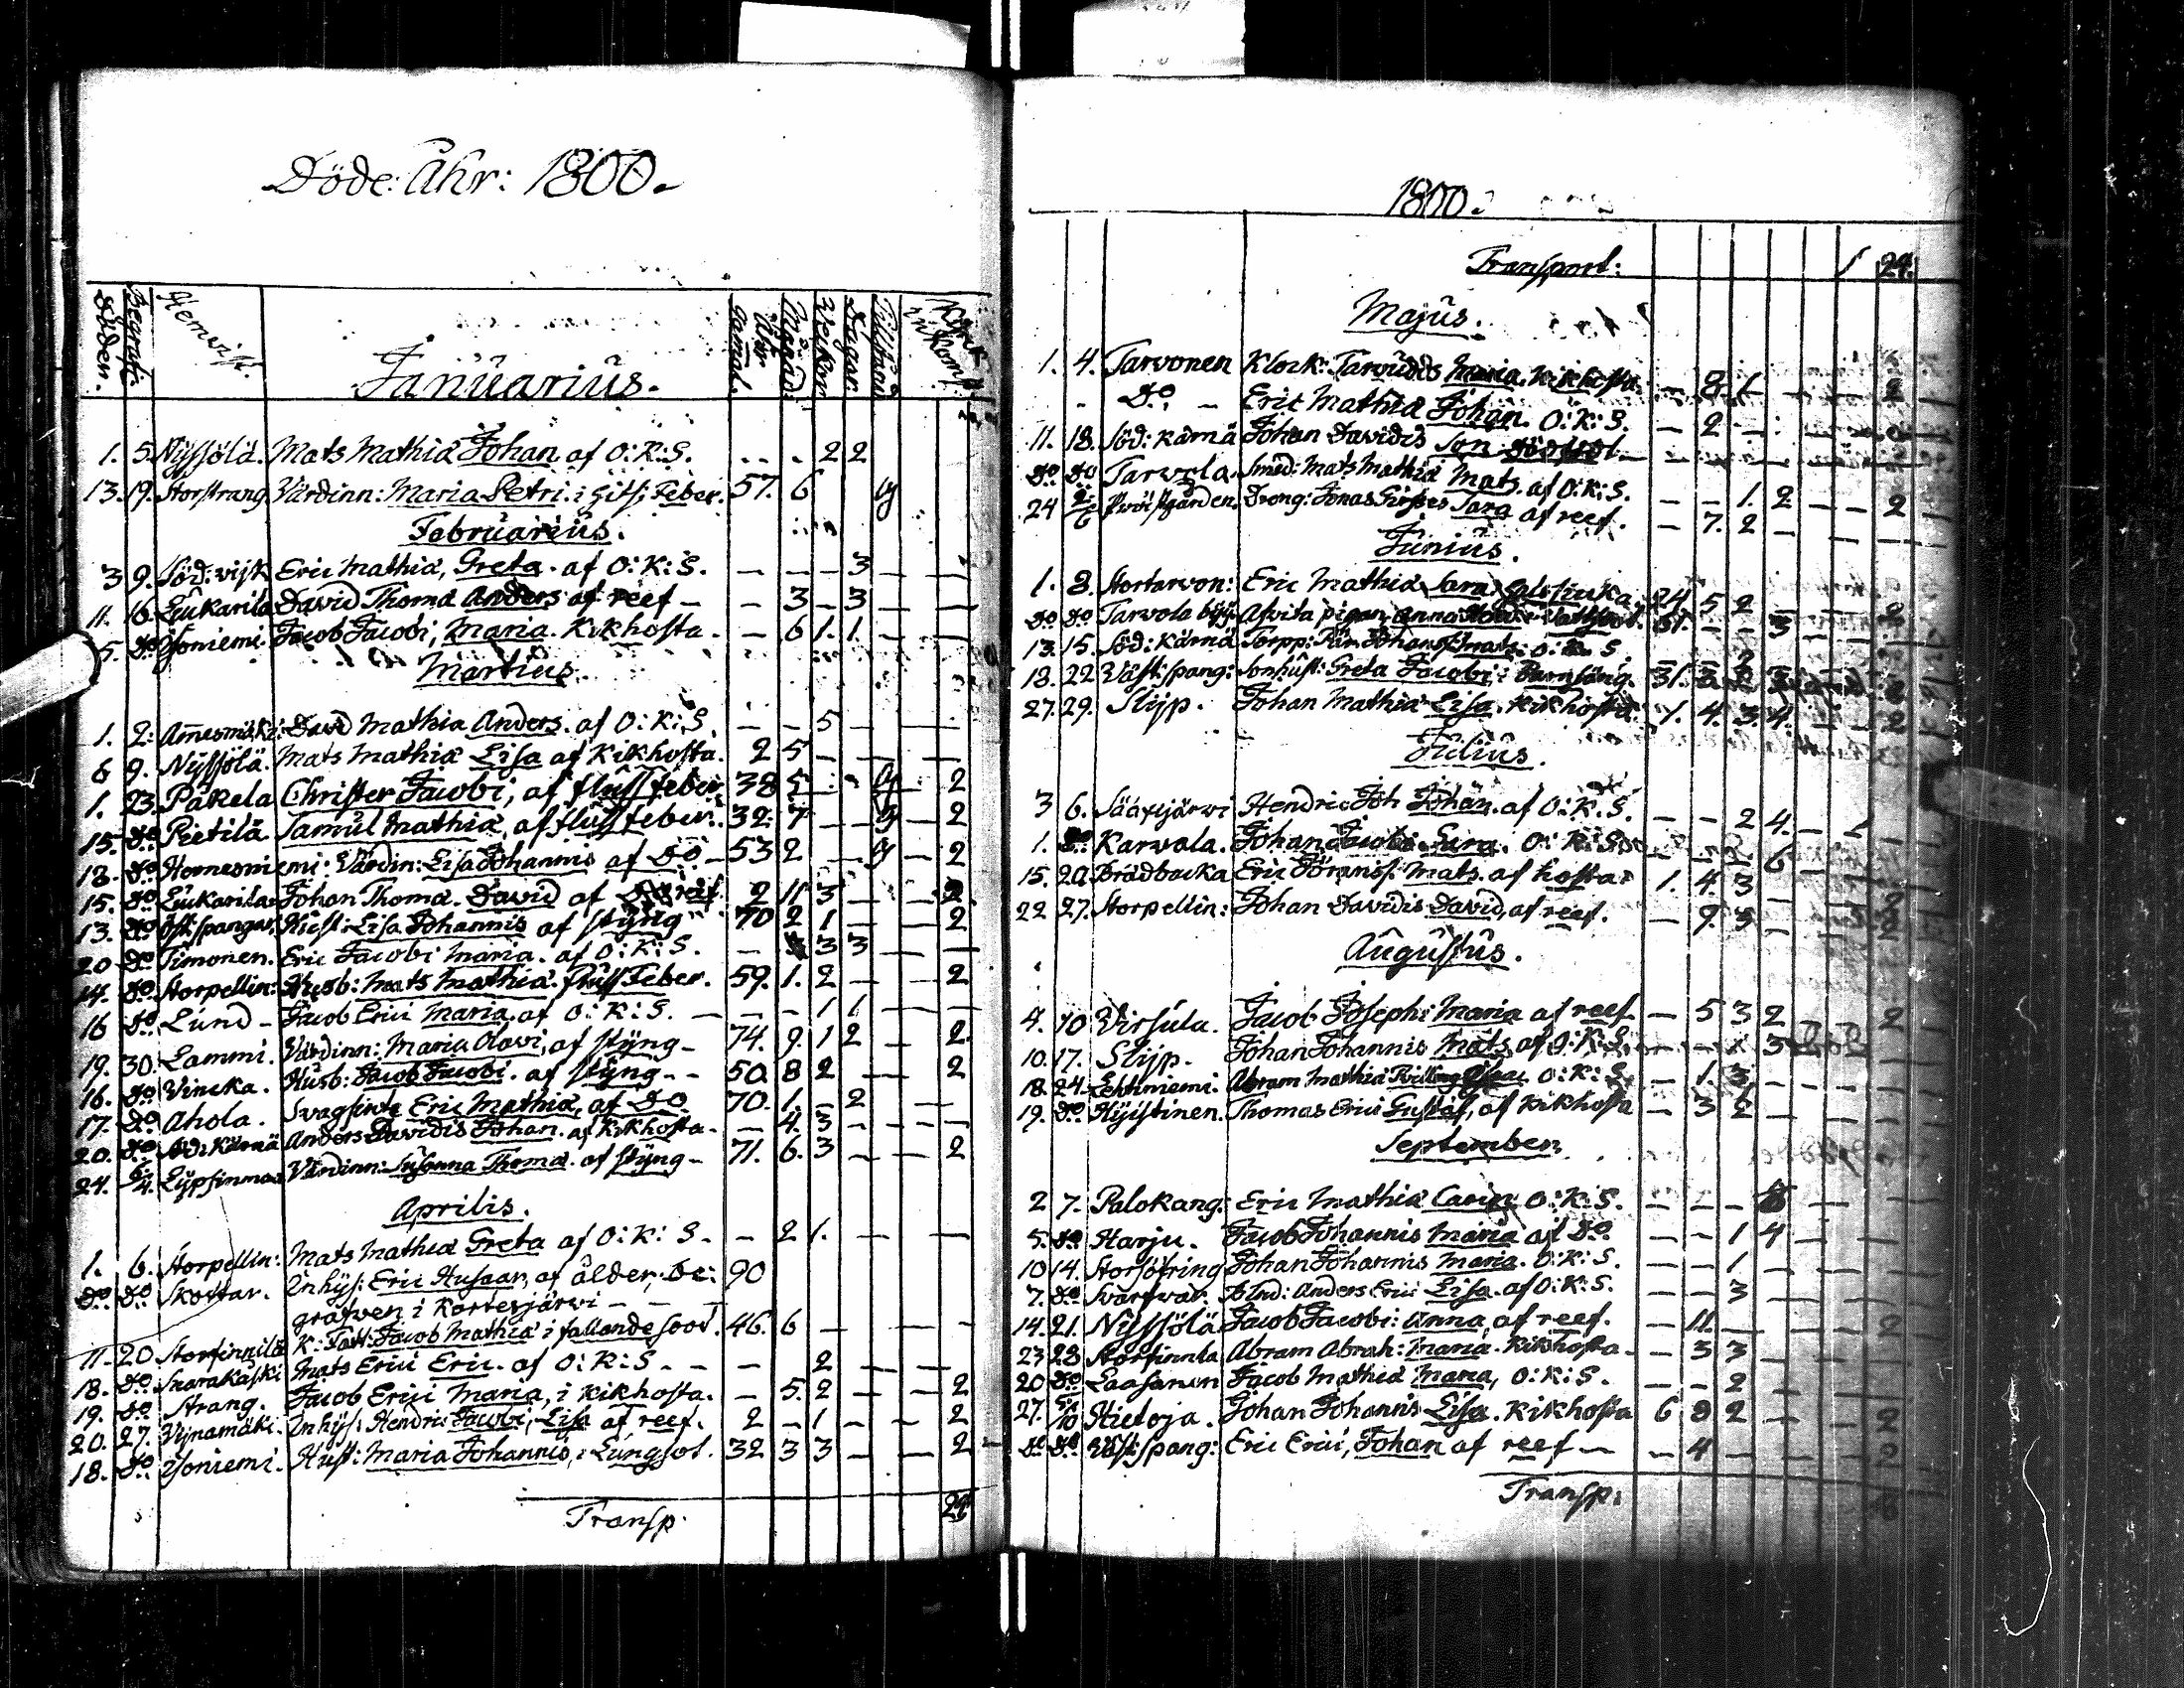 Döde: Åhr: 1800.
Döden. Begrafn. Hemvist. Januarius. Gamal. Åhr Månad: Veckor Dagar. Kyrck inkomst
1. 5. Nyssölä. Mats Mathiæ Johan af O: K: S. - - 2 2
13. 19. Storstrang Värdinn: Maria Petri. i Hits: Feber. 57. 6 g
Februarius.
3 9. Söd: visk Eric Mathiæ, Greta. af O: K: S. - - - 3 - -
11. 16. Liukarila David Thomæ Anders af reef - - 3 - 3 - -
5. Do Yoniemi. Jacob Jacobi, Maria. Kikhosta. - 6 1. 1. - -
Martius.
1. 2. Ammesmäki: David Mathiæ Anders. af O: K: S. - - 5 - - -
6 9. Nyssölä. Mats Mathiæ Lisa af Kikhosta. 2 5 - - - -
1. 23. Päkela Christer Jacobi, af fluss feber. 38 5 - - g - 2
15. Do. Pietilä Samul Mathiæ, af fluss feber. 32. 7 - - g - 2
18. Do Hernesniemi: Värdin: Lisa Johannis af Do - 53 2 - g - 2
15. Do Liukarila Johan Thomæ. David af reef 2 11 3 - - 2.
13. Do Öst: spangar, Hust: Lisa Johannis af styng 70 2 1 - - 2
20 Do Timonen. Eric Jacobi Maria. af O: K: S. - 3 3 - -
14. Do Storpellin: Husb: Mats Mathiæ. fluss Feber. 59. 1. 2 - - 2
16 Do. Lund - Jacob Erici Maria. af O: K: S. - - - 1 1 - -
19. 30. Lammi. Värdinn: Maria Olavi, af styng - 74. 9. 1 2 - 2
16. Do Vincka. Husb: Jacob Jacobi. af styng - - 50. 8 2 - 2
17. Do Ahola. Eric Mathiæ, af Do 70. 1. - 2 - -
20. Do Söd: Kärnä Anders Davidis Johan. af Kikhosta - - 4. 3 - - -
24. 6/4. Lypsinmaa Värdinn: Susanna Thomæ. af styng - 71. 6. 3 - - 2
Aprilis.
1. 6. Storpellin: Mats Mathiæ Greta af O: K: S. - 2 1. - - -
Do. Do Skottar. Inhys: Eric Husaar, af ålder, be: 90
grafven i Kortesjärvi - - -
11. 20 Storfinnilä K: Fatt: Jacob Mathiæ i fallande soot. 46. 6 - - -
18. Do Snarakåski Mats Erici Eric. af O: K: S - - - 2 - -
19. Do Strang. Jacob Erici Maria, i Kikhosta. - 5. 2 - - 2
20. 27. Vynamäki. Inhys: Hendric Jacobi, Lisa af reef. 2 - 1 - - 2
18. Do Yoniemi. Hust: Maria Johannis, i Lungsot. 32 3 3 - - 2
Transp. 24
1800.
Transport: 1 24.
Majus.
1. 4. Tarvonen Klock: Maria. Kikhosta - 8 1 - - - 2
- Do. - Eric Mathiæ Johan. O: K: S. - 2 - - - -
11. 18. Söd: Kärnä Johan Davidis Son dödföd -
Do Do Tarvola. Smed: Mats Mathiæ Mats. af O: K: S. - - 1. 2 - - 2
24 2/6 Präistgården. Dräng: Jonas Sara af reef. - 7. 2 - - -
Junius.
1. 8. Stortarvon: Eric Mathiæ Sara 24 5 2
Do Do Tarvola by: Afvita pigan Anna 61. - - 3 - - 2
13. 15. Söd: Kärnä Torpp: Mats: O: K: S.
18. 22 Väst: spang: Sonhust: Greta Jacobi: Barnsäng. 31. 3 2 3
27. 29. Slijp. Johan Mathiæ Lisa. Kikhosta. 1. 4. 3. 4. - - 2
Julius.
3 6. Sääxjärvi Hendric Joh Johan. af O: K. S. - - 2 4. - -
1. Do Karvala. Johan Jacobi Sara. O: K: S. - - - 6 -
15. 20 Brådbacka Eric Göranss: Mats. af hosta 1. 4. 3
22 27. Storpellin: Johan Davidis David, af reef. - 9. 3 2
Augustus.
4. 10 Virsula. Jacob Josephi Maria af reef - 5 3 2 2
10. 17. Slijp. Johan Johannis Mats af O: K: S. - - 1 3
18. 24. Lehtiniemi. Abram Mathiæ O: K: S. - 1. 3 - - -
19. Do Hyistinen. Thomas Erici Gustaf, af Kikhosta - 3 2 - - -
September.
2 7. Palokang: Eric Mathiæ Carin O: K: S. - - - 8 - -
5. Do Harju. Jacob Johannis Maria af Do. - - 1 4 - -
10 14. Storsöfring Johan Johannis Maria. O: K: S. - - 1 - -
7. Do Svartvar. Anders Erici Lisa. af O: K: S. - - 3 - -
14. 21. Nyssölä Jacob Jacobi: Anna, af reef. - 11. - - - 2
23 28 Storfinnla Abram Abrah: Maria. Kikhosta - - 3 3 - -
20 Do Laasanen Jacob Mathiæ Maria, O: K: S. - - 2 - -
27. 5/10 Hietoja. Johan Johannis Lisa. Kikhosta 6 8 2 - - 2
Do Do Väst: spang: Eric Erici, Johan af reef - - 4 - - - 2
Transp.